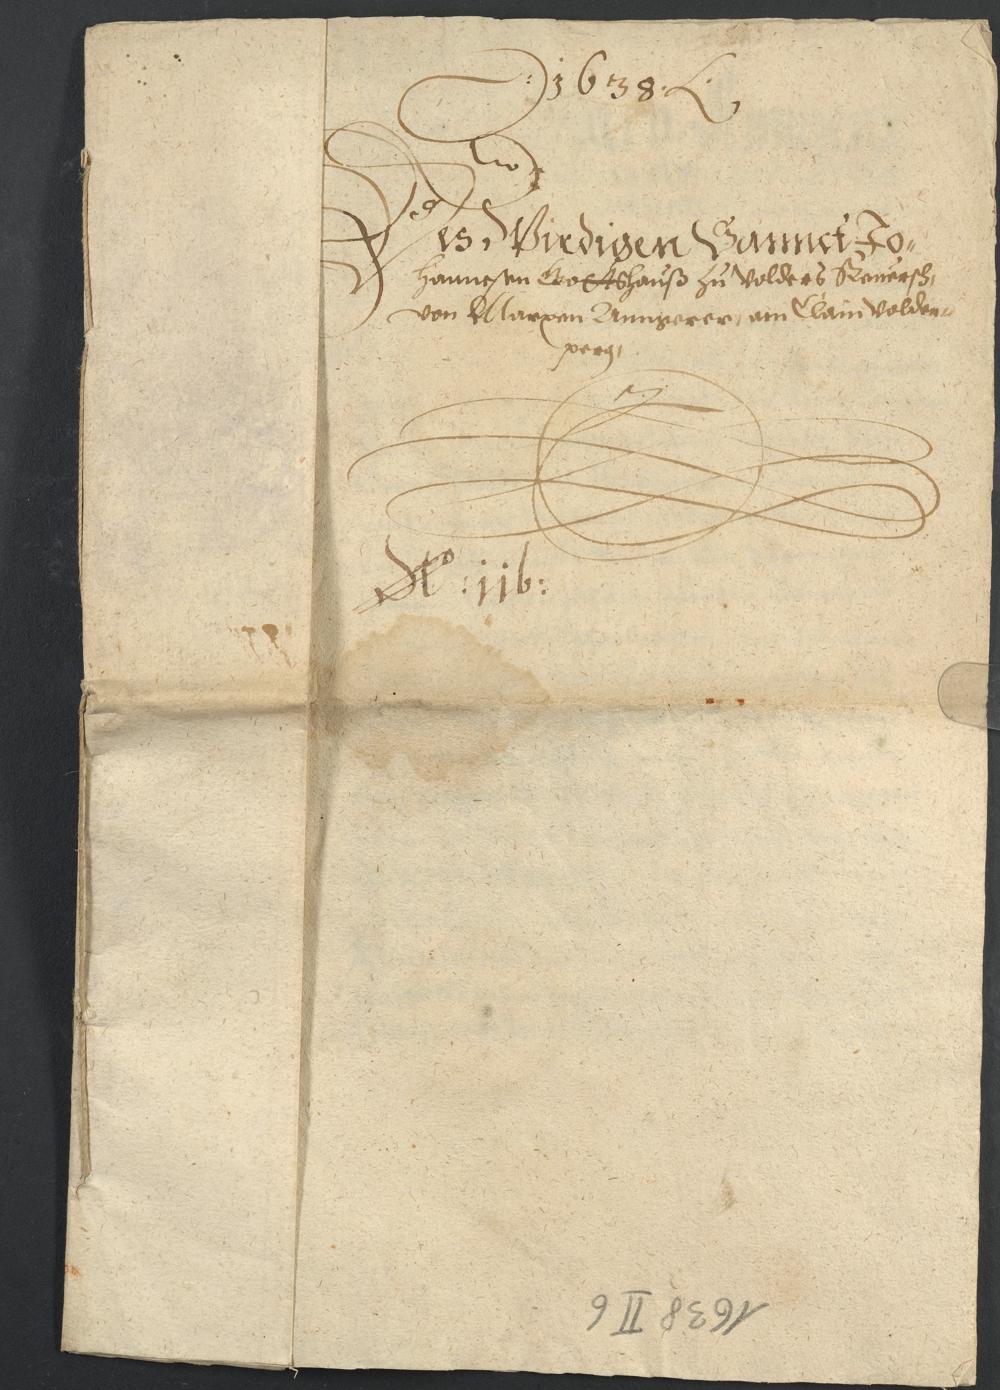 :1638. L.
No
Des Wirdigen Sannct Jo-
hannesen Gottshauß zu Volders Reuersß,
von Marxen Anngerer, am Clain Volder-
perg,
No :116:
1638 II 6